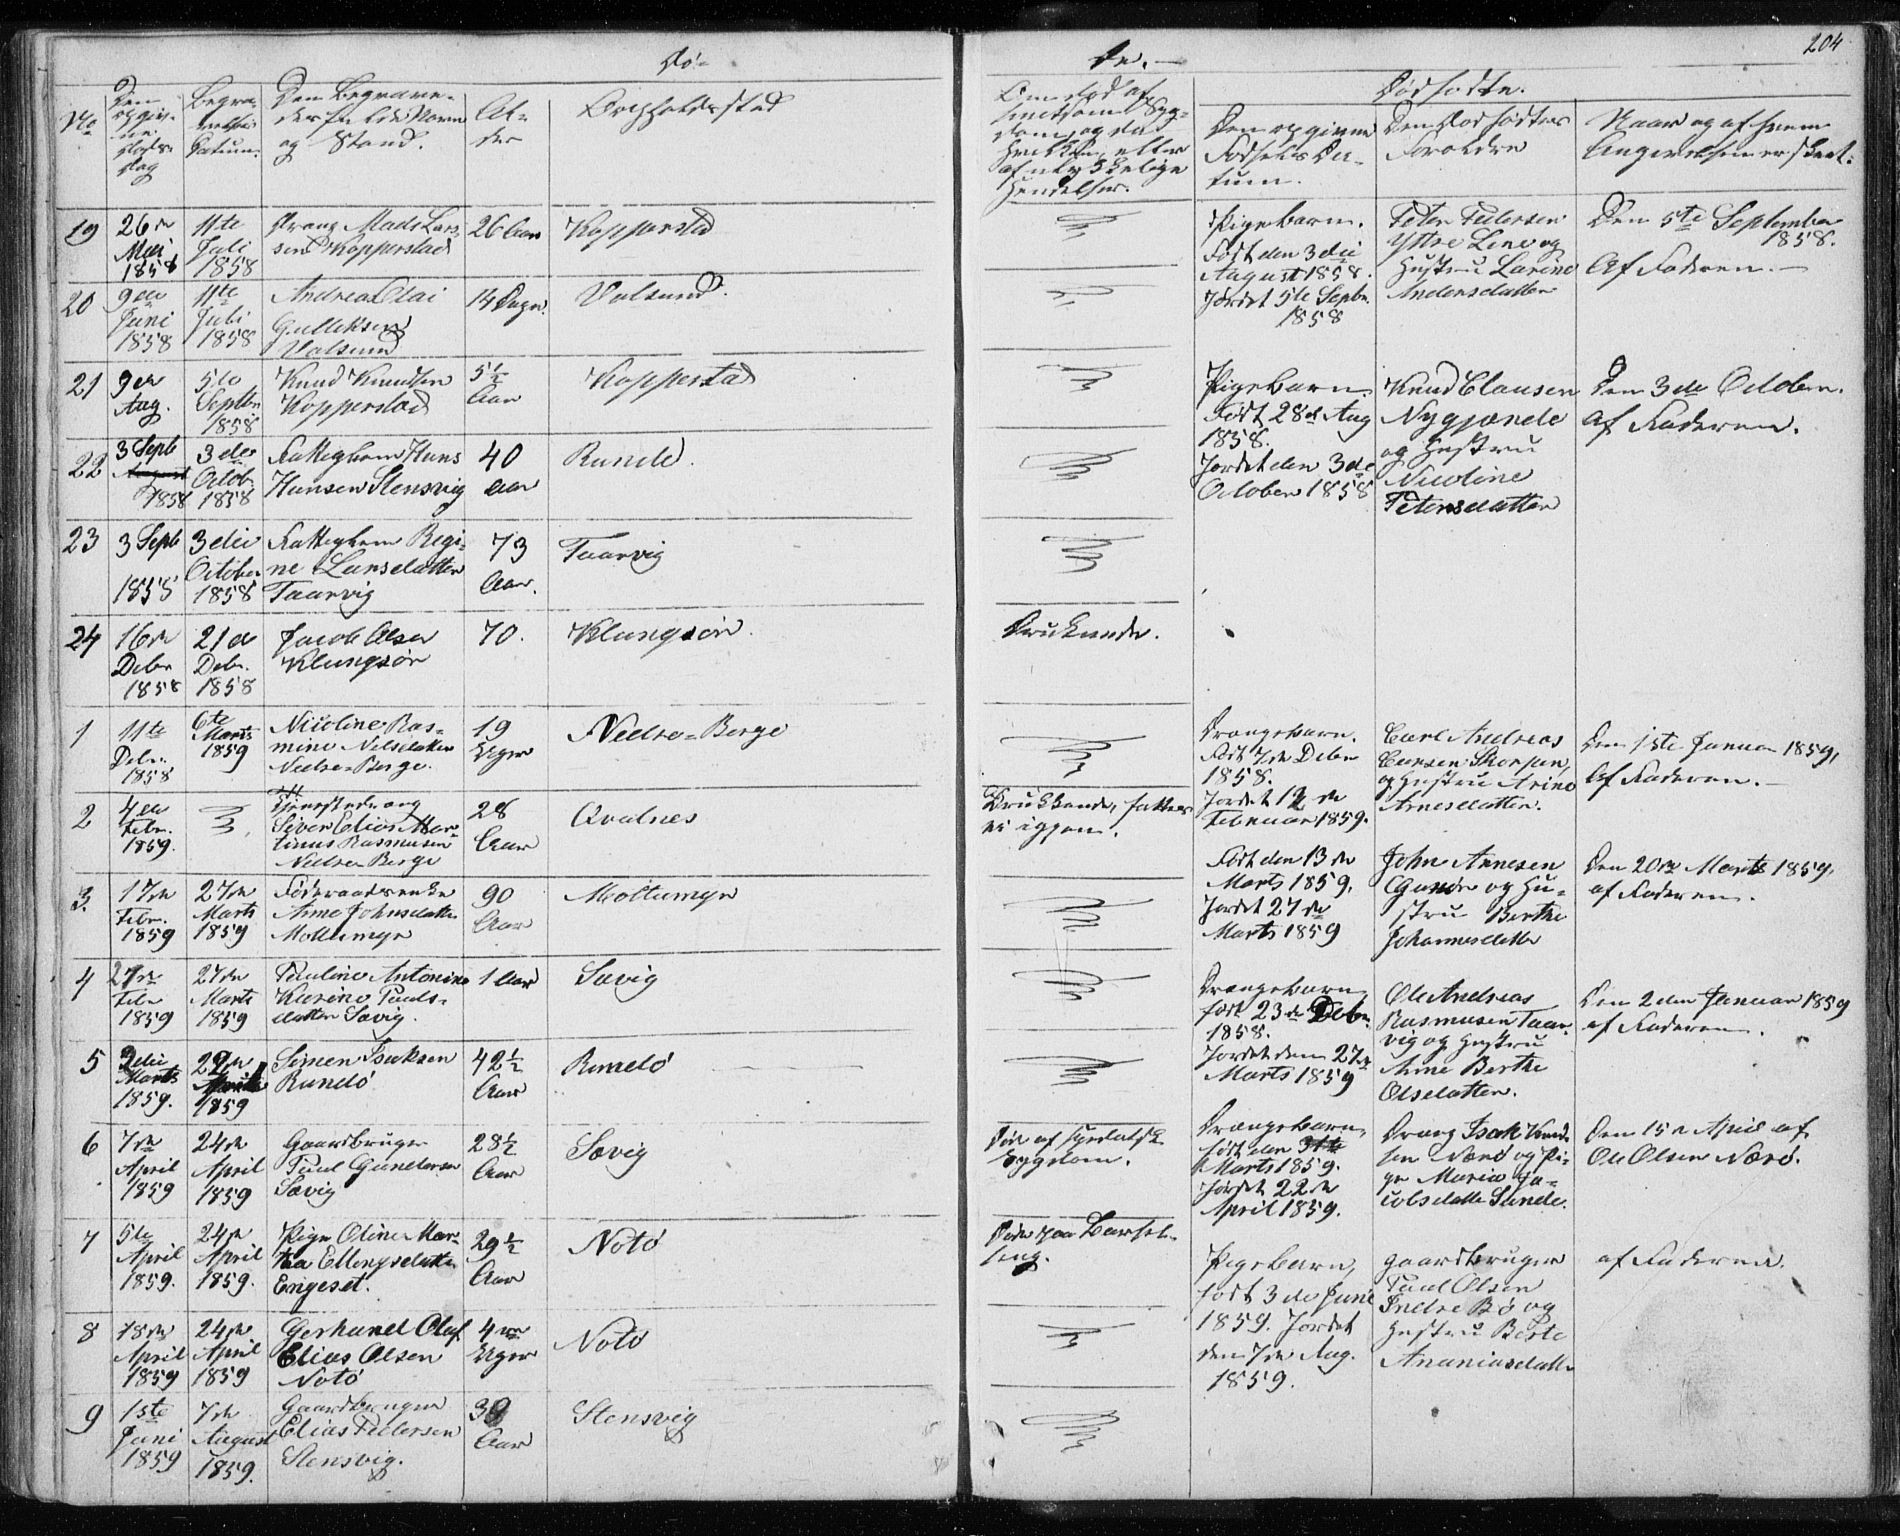 204
Dø-
de.
No
Den opgivne Døds Dag
Begravelses Datum.
Den Begravedes fulde Navn og Stand.
Alder
Opholdssted
Dødfødte.
Den opgivne Fødsels Datum.
Den Dødfødtes Forældre
Naar og af hvem Angivelsen er skeet.
19
26de Mai 1858
11te Juli 1858
Dreng Mads Larssen Kopperstad
26 Aar
Kopperstad
20
9de Juni 1858
11te Juli 1858
Andreas Olai Gulleksen Valsund
14 Dage
Valsund.
21
9de Aug.
5te Septbr 1858
Knud Knudsen Kopperstad
5½ Aar
Kopperstad
22
3 Septb 1858
3die Octob. 1858
Fattiglem Hans Hansen Stensvig
40 Aar
Runde.
23
3 Septb 1858
3die October 1858
Fattiglem Regine Larsdatter Taarvig
73 Aar.
Taarvig
24
16de Debr 1858
21de Debr. 1858
Jacob Olsen Klungsør
70.
Klungsør.
Druknede.
1
11te Debr. 1858
6te Marts 1859
Nicoline Rasmine Nilsdatter Nedre Berge.
19 Uger
Nedre-Berge
2
4de Febr. 1859.
Siver Elias Martinus Rasmusen Nedre Berge
28 Aar
Qvalnes
3.
17de Febr. 1859
27de Marts 1859
Føderaadsenke Anne Johnsdatter Moltumyr
90 Aar
Moltumyr
4
27de Febr 1859
27de Marts 1859
Pauline Antonine Karine Paulsdatter Sævig.
1 Aar
Sævig
5
3die Marts 1859.
22de April 1859
Simen Isaksen Rundø
42½ Aar
Rundø
6
7de April 1859
24de April 1859
Gaardbruger Paul Gundersen Sævig
28½ Aar
Sævig
Død af spedalsk Sygdom.
7
5te April 1859.
24de April 1859.
Pige Oline Martha Ellingsdatter Engeset.
29½ Aar
Notø
Døde paa Barselseng.
8
18de April 1859
24de April 1859
Gerhard Olaf Elias Olsen Notø
4re Uger
Notø
9
1ste Juni 1859
7de August 1859.
Gaardbruger Elias Pedersen Stensvig.
39 Aar
Stensvig
Pigebarn. Født den 3die August 1858. Jordet 5te Septbr. 1858
Peter Pedersen Yttre Lene og Hustru Larine Andersdatter
Den 5te September 1858. Af Faderen.
Pigebarn. Født 28de Aug 1858. Jordet den 3de October 1858
Knud Clausen Nygjærde og Hustru Nicoline Petersdatter
Den 3de October. Af Faderen.
Drengebarn. Født 7de Debr 1858. Jordet 12de Februar 1859.
Carl Andreas Carsen Skorpen, og Hustru Arine Arnesdatter.
Den 1ste Januar 1859, Af Faderen.
Født den 13de Marts 1859, Jordet 27de Marts 1859
John Annesen og Hustru Berthe Johannesdatter
Den 20de Marts 1859, af Faderen.
Drengebarn, født 23de Debr. 1858. Jordet den 27de Marts 1859
Ole Andreas Rasmusen Taarvig og Hustru Anne Berthe Olsdatter.
Den 2den Januar 1859 af Faderen.
Drengebarn, født den 31te Marts 1859. Jordet 22de April 1859.
Dreng Isak Knudsen Nærø og Pige Maria Jacobsdatter Sunde.
Den 15de April af Ole Olsen Nærø.
Pigebarn, født 3de Juni 1859. Jordet den 7de Aug. 1859.
Gaardbruger Paul Olsen Indre Bø og Hustru Berte Ananiasdatter
af Faderen.